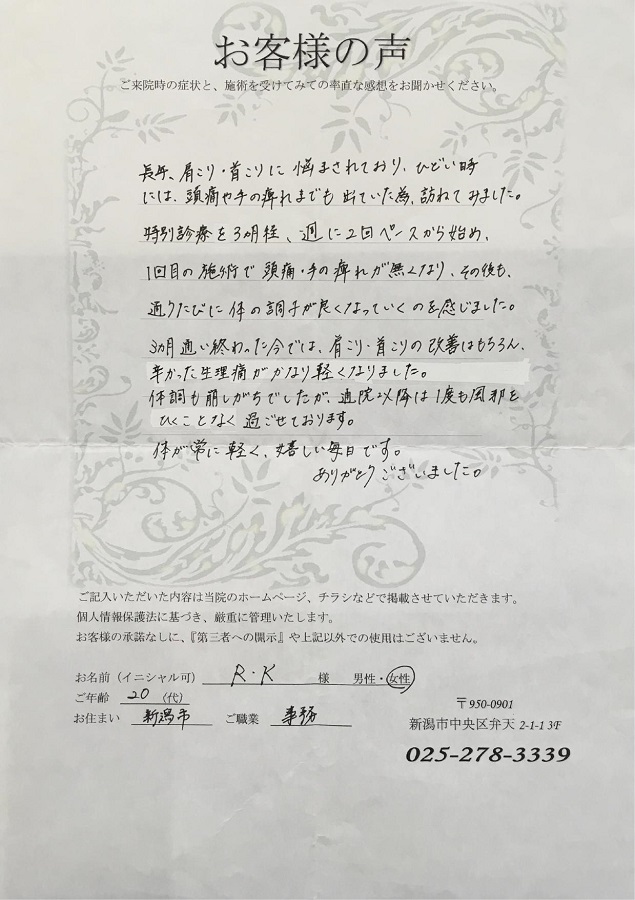 お客様の声
ご来院時の症状と、施術を受けてみての率直な感想をお聞かせください。
長年、肩こり・首こりに悩まされており、ひどい時
には、頭痛や手の痺れまでも出ていた為、訪ねてみました。
特別診療を3ヵ月程、週に2回ペースから始め、
1回目の施術で頭痛・手の痺れが無くなり、その後も、
通うたびに体の調子が良くなっていくのを感じました。
3ヵ月通い終わった今では、肩こり・首こりの改善はもちろん、
辛かった生理痛がかなり軽くなりました。
体調も崩しがちでしたが、通院以降は1度も風邪を
ひくことなく過ごせております。
体が常に軽く、嬉しい毎日です。
ありがとうございました。
ご記入いただいた内容は当院のホームページ、チラシなどで掲載させていただきます。
個人情報保護法に基づき、厳重に管理いたします。
お客様の承諾なしに、『第三者への開示』や上記以外での使用はございません。
お名前（イニシャル可） R・K 様 男性・女性
ご年齢 20 (代)
お住まい 新潟市 ご職業 事務
〒950-0901
新潟市中央区弁天 2-1-1 3F
025-278-3339